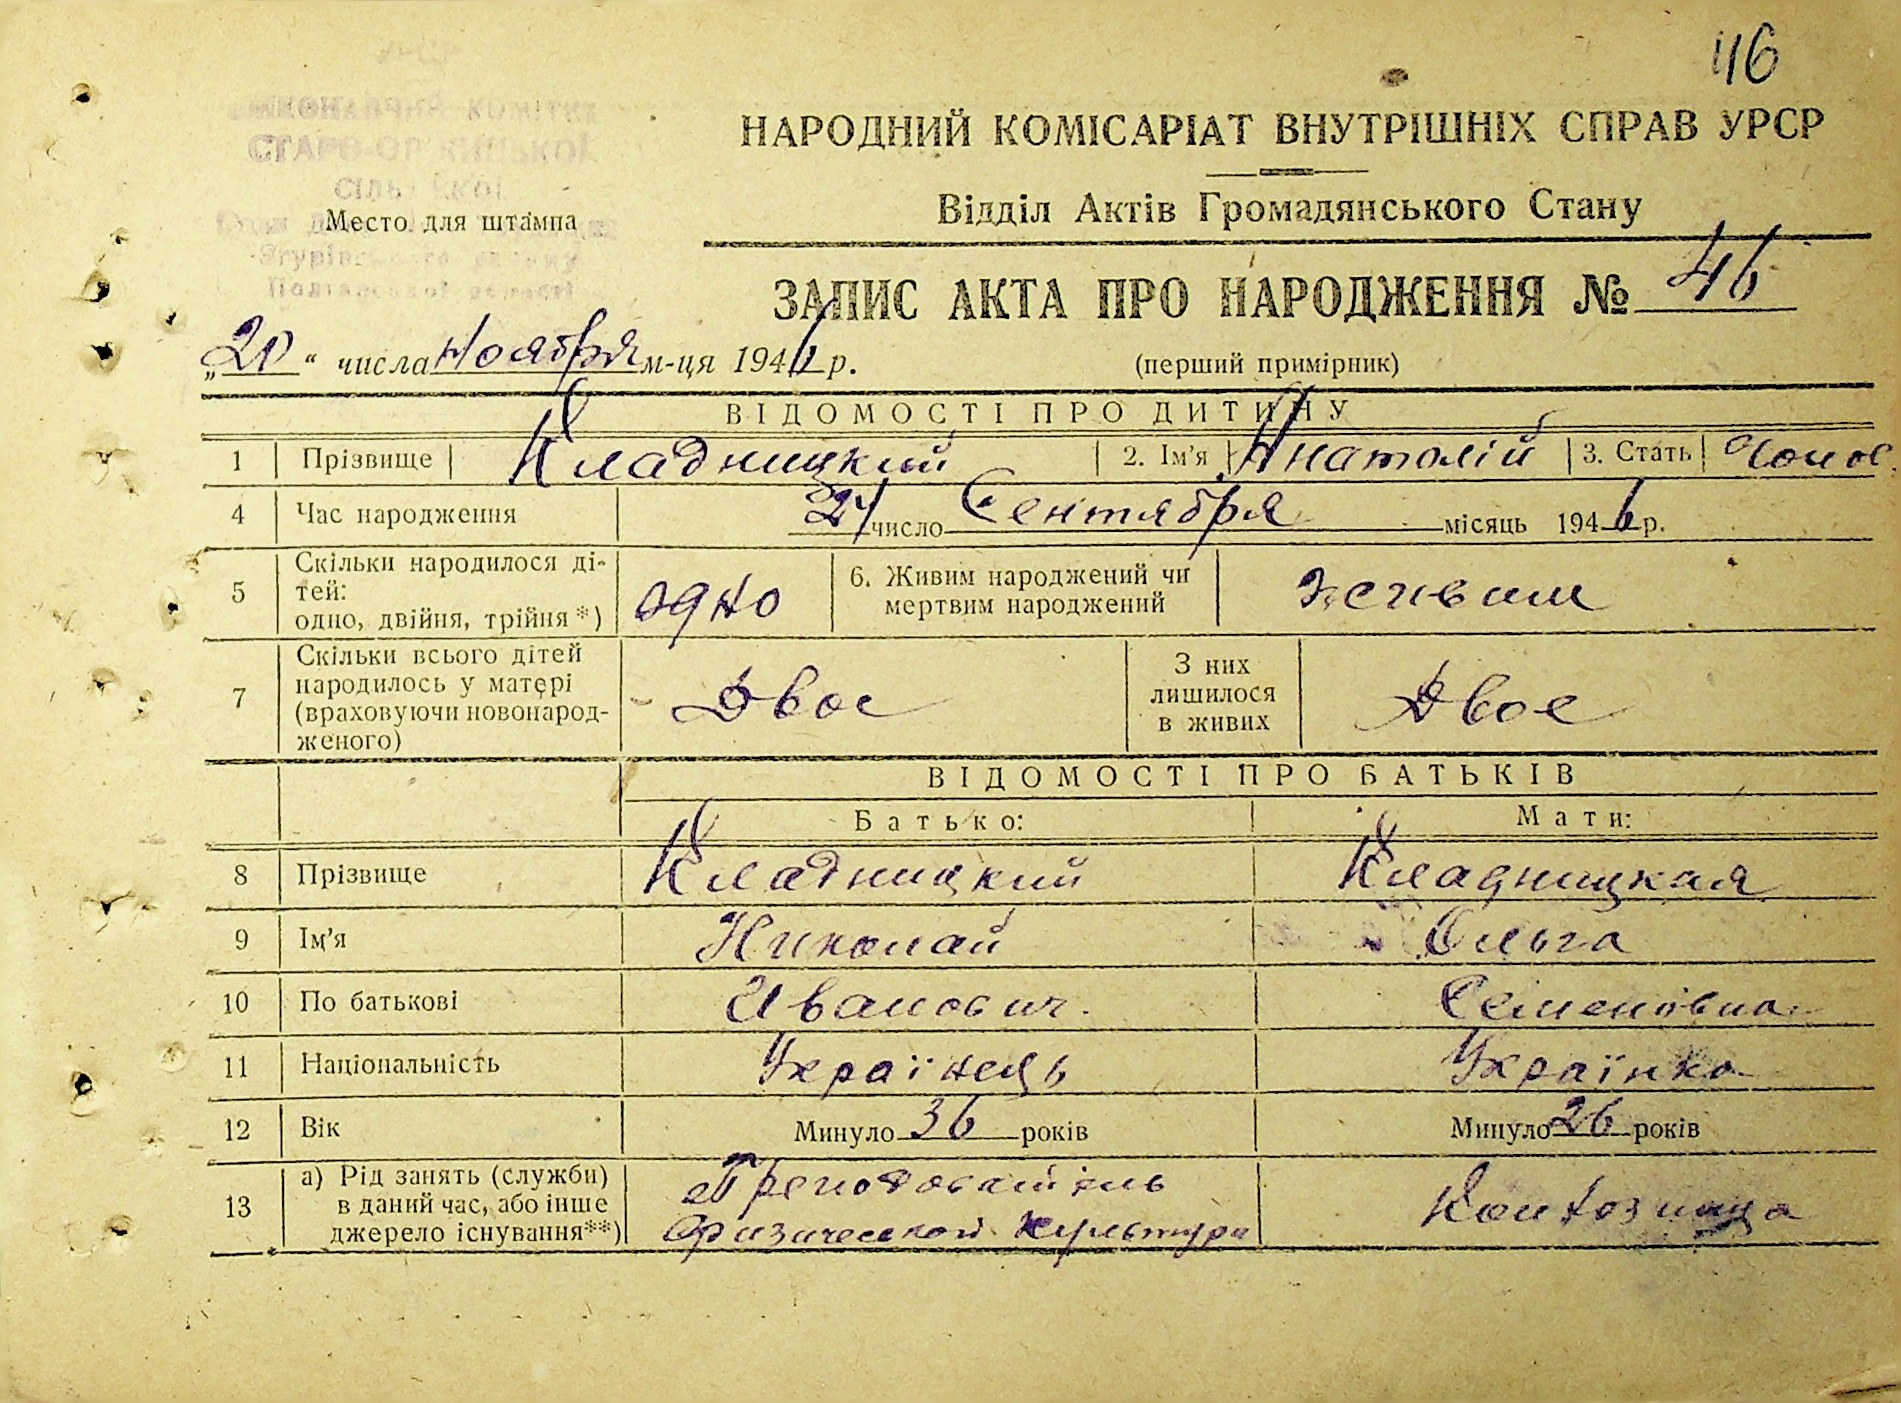 46
НАРОДНИЙ КОМІСАРІАТ ВНУТРІШНІХ СПРАВ УРСР
Відділ Актів Громадянського Стану
КОМІТЕТ
СТАРО-
Место для штампа
Полтавської області
ЗАПИС АКТА ПРО НАРОДЖЕННЯ № 46
„20“ числа Ноября м-ця 1946 р.
(перший примірник)
ВІДОМОСТІ ПРО ДИТИНУ
1 Прізвище Кладницкий 2. Ім'я Анатолій 3. Стать Чолов.
4 Час народження 24 число Сентября місяць 1946 р.
5 Скільки народилося ді-
тей:
одно, двійня, трійня *) одно
6. Живим народжений чи
мертвим народжений живим
7 Скільки всього дітей
народилось у матері
(враховуючи новонарод-
женого) Двое
З них
лишилося
в живих Двое
ВІДОМОСТІ ПРО БАТЬКІВ
Батько: Мати:
8 Прізвище Кладницкий Кладницкая
9 Ім'я Николай Ольга
10 По батькові Иванович. Семенівна
11 Національність Українець Українка
12 Вік Минуло 36 років Минуло 26 років
13 а) Рід занять (служби)
в даний час, або інше
джерело існування**)
Преподаватель
Физической культури
Колхозница